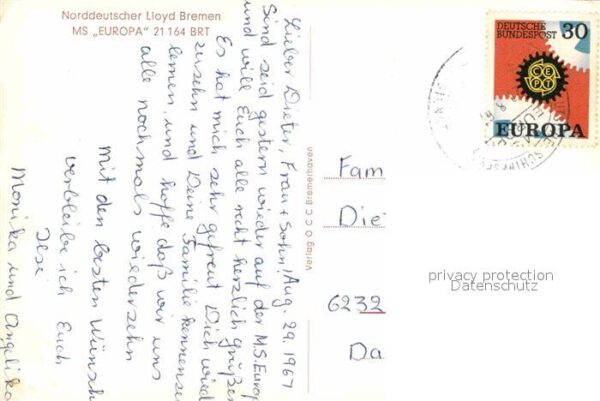 Norddeutscher Lloyd Bremen
MS „EUROPA" 21164 BRT
Lieber Dieter, Frau + Sohn! Aug. 29, 1967
Sind seid gestern wieder auf der M.S. Europ
und will Euch alle recht herzlich grüßen
Es hat mich sehr gefreut Dich wied
zusehn und Deine Familie kennenzu
lernen, und hoffe daß wir uns
alle nochmals wiedersehn
Mit den besten Wünsch
verbleibe ich Euch
Ilse
Monika und Angelika
Verlag C C O Bremerhaven
DEUTSCHE
BUNDESPOST
30
CEPT
EUROPA
Fam
Die
6232
Da
privacy protection
Datenschutz